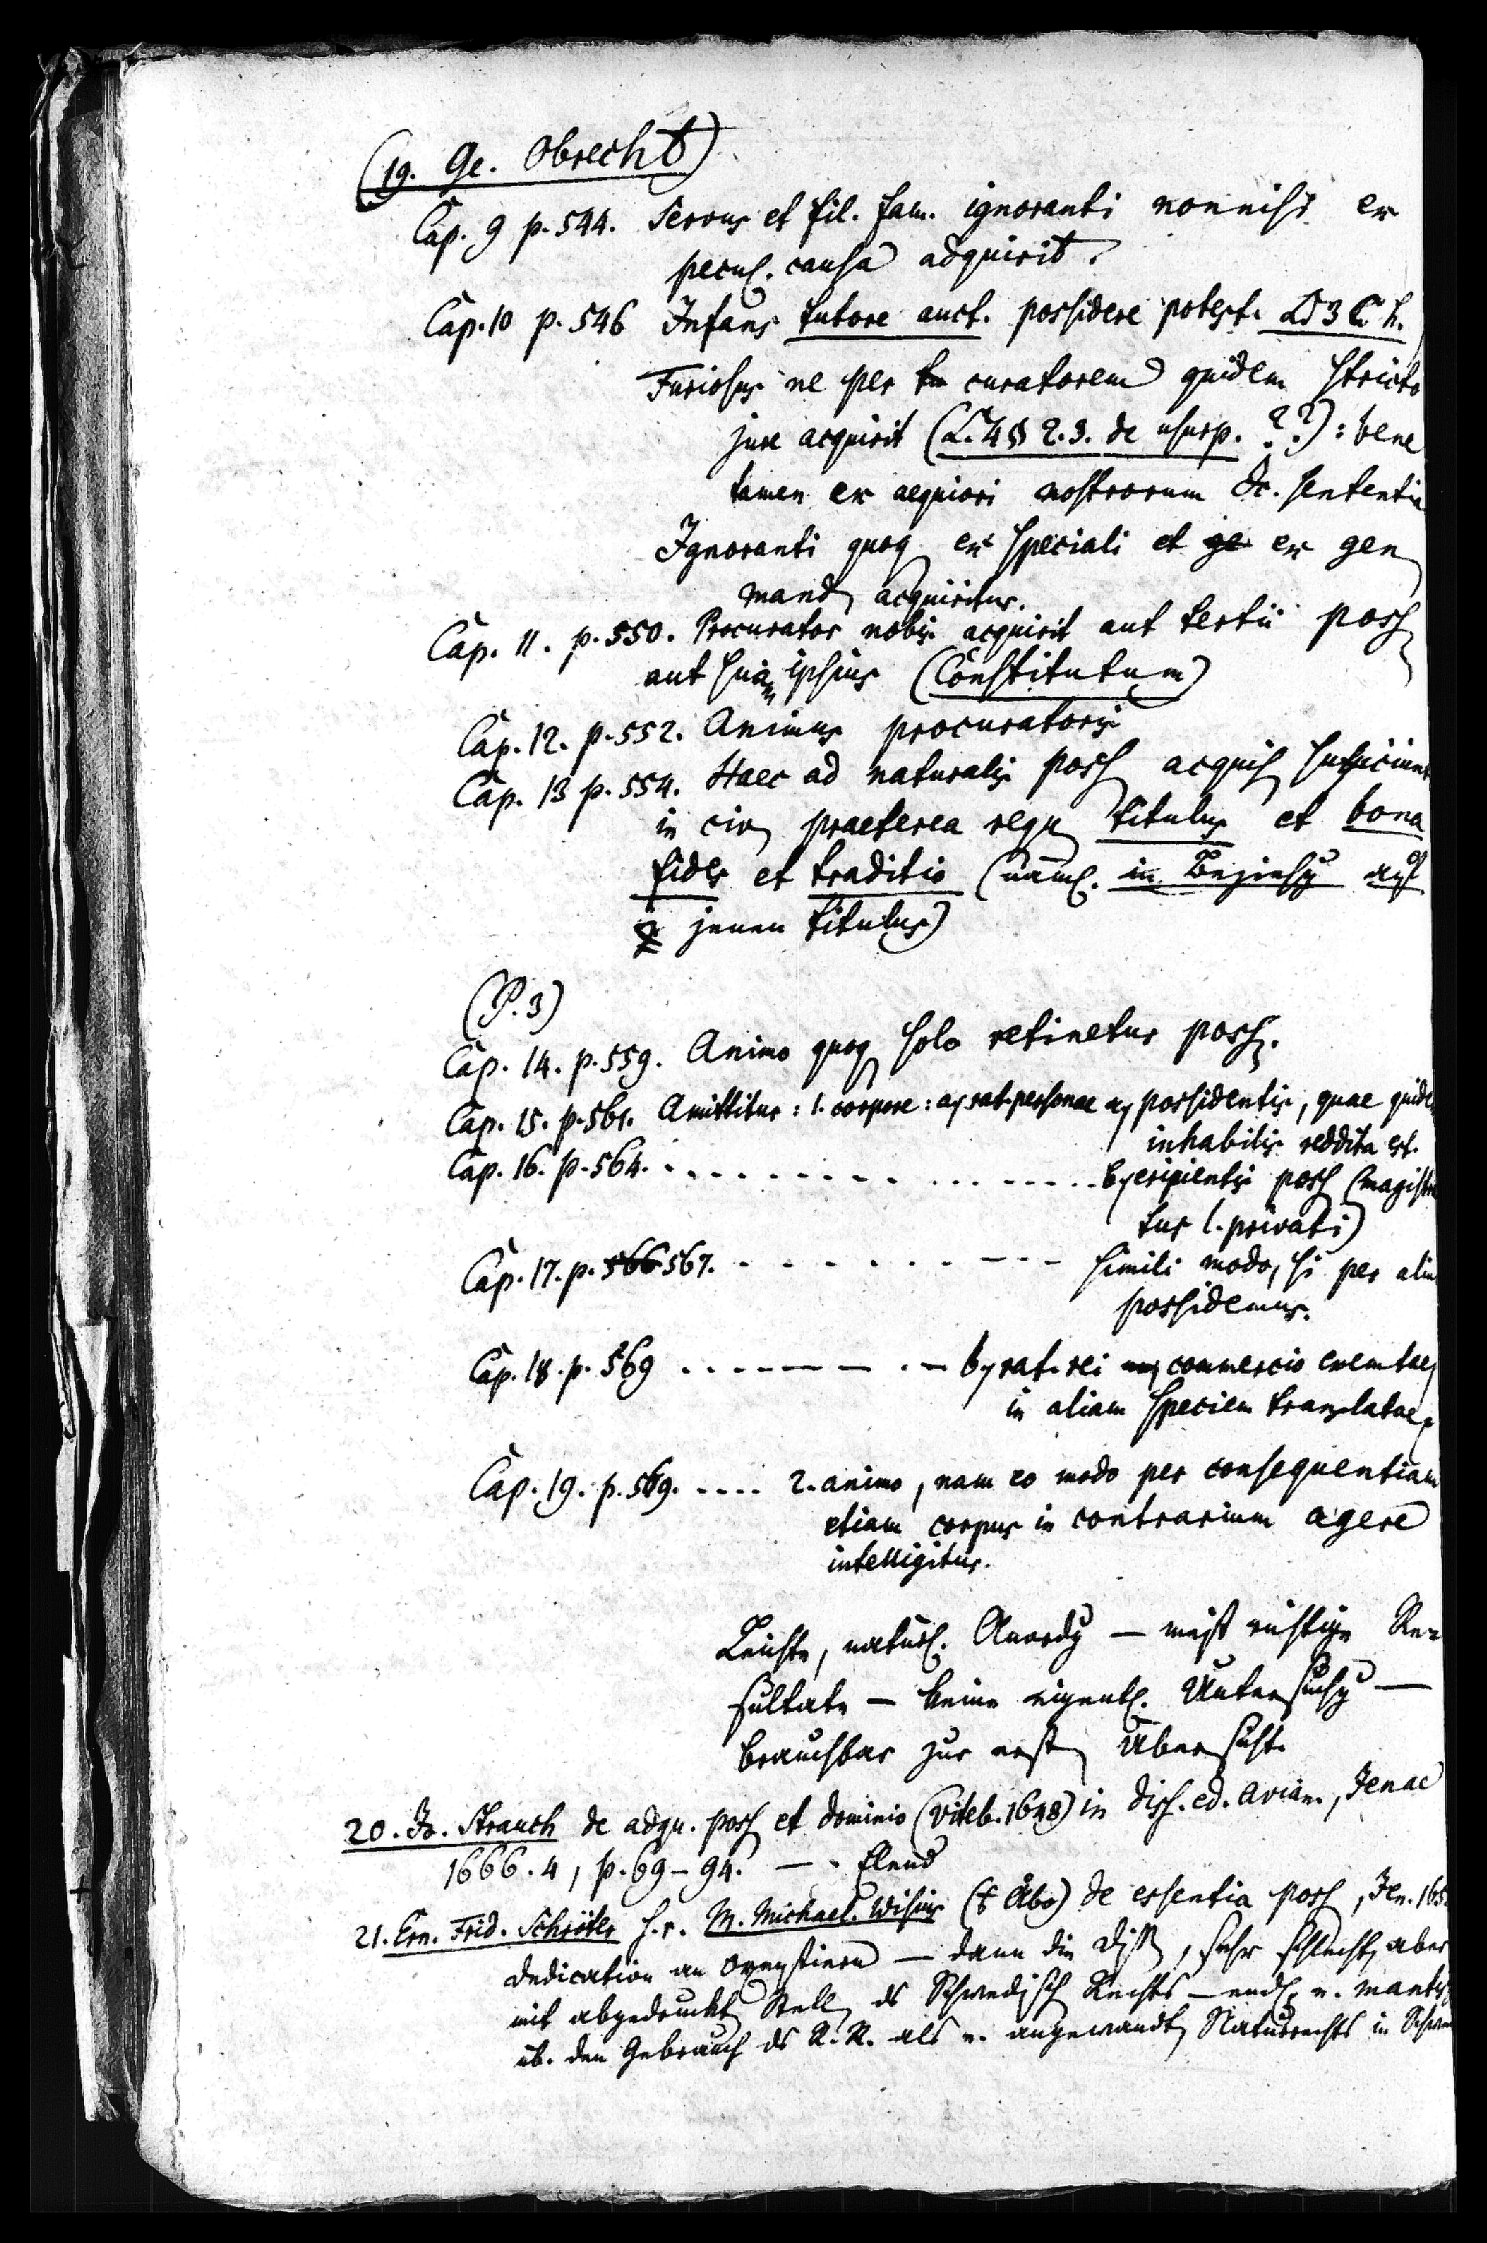 (19. Ge. Obrecht)
Cap. 9 p. 544. Servus et fil. fam. ignoranti nonnisi ex
pecul. causa adquirit.
Cap. 10 p. 546 Infans tutore auct. possidere potest. L 3 C. h.
Furiosus ne per tu curatorem quidem stricto
jure acquirit (L. 4 § 2. 3. de usurp. ??): bene
tamen ex aequiori nostrorum Jc. sententia
Ignoranti quoq ex speciali et ge ex gen
mand acquiritur.
Cap. 11. p. 550. Procurator nobis acquirit aut tertii poss
aut suam ipsius (Constitutum)
Cap. 12. p. 552. Animus procuratoris
Cap. 13 p. 554. Haec ad naturalis poss acquis sufficiunt
in civ praeterea requ titulus et bona
fides et traditio (näml. in Beziehg auf
jenen titulus)
(P. 3)
Cap. 14. p. 559. Animo quoq solo retinetur poss.
Cap. 15. p. 561. Amittitur: 1. corpore: a, rat. personae a, possidentis, quae quidem
inhabilis reddita est.
Cap. 16. p. 564. - - - - - - - - b, eripientis poss (magistra
tus l. privati)
Cap. 17. p. 566 567. - - - - - - - - simili modo, si per alium
possidemus.
Cap. 18. p. 569 - - - - - - b, rat. rei commercio exemtae,
in aliam speciem translatae,
Cap. 19. p. 569. - - - - 2. animo, nam eo modo per consequentiam
etiam corpus in contrarium agere
intelligitur.
Leichte, natürl. Anordg — meist richtige Re=
sultate — keine eigentl. Untersuchg —
brauchbar zur erst Übersicht.
20. Jo. Strauch de adqu. poss et dominio (Viteb. 1648) in diss. ed. avian., Jenae
1666. 4, p. 69-94. — . Elend
21. Ern. Frid. Schröter s. r. M. Michael. Wisius (t Åbo) de essentia poss, Jen. 165
Dedication an Oxenstiern — dann die Diss, sehr schlecht, aber
mit abgedruckt Stell ds Schwedisch Rechts — endl. e. mantis
üb. den Gebrauch ds R. R. als e. angewandt Naturrechts in Schwe